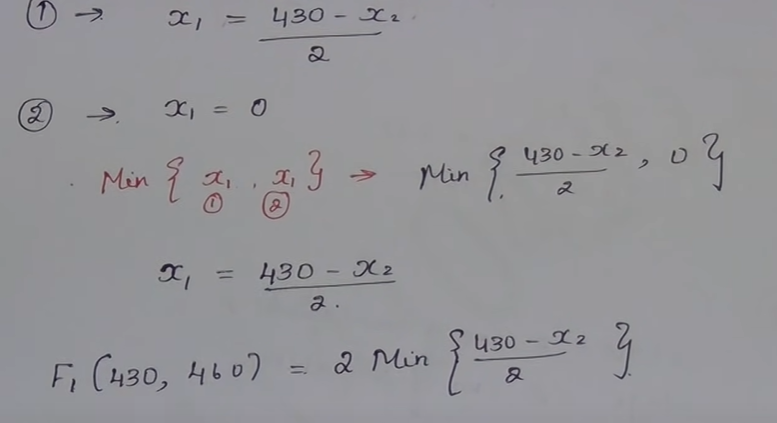 ① → x₁ = (430 - x₂)/2
② → x₁ = 0
Min { x₁ , x₁ } → Min { (430 - x₂)/2 , 0 }
① ②
x₁ = (430 - x₂)/2.
F₁ (430, 460) = 2 Min { (430 - x₂)/2 }